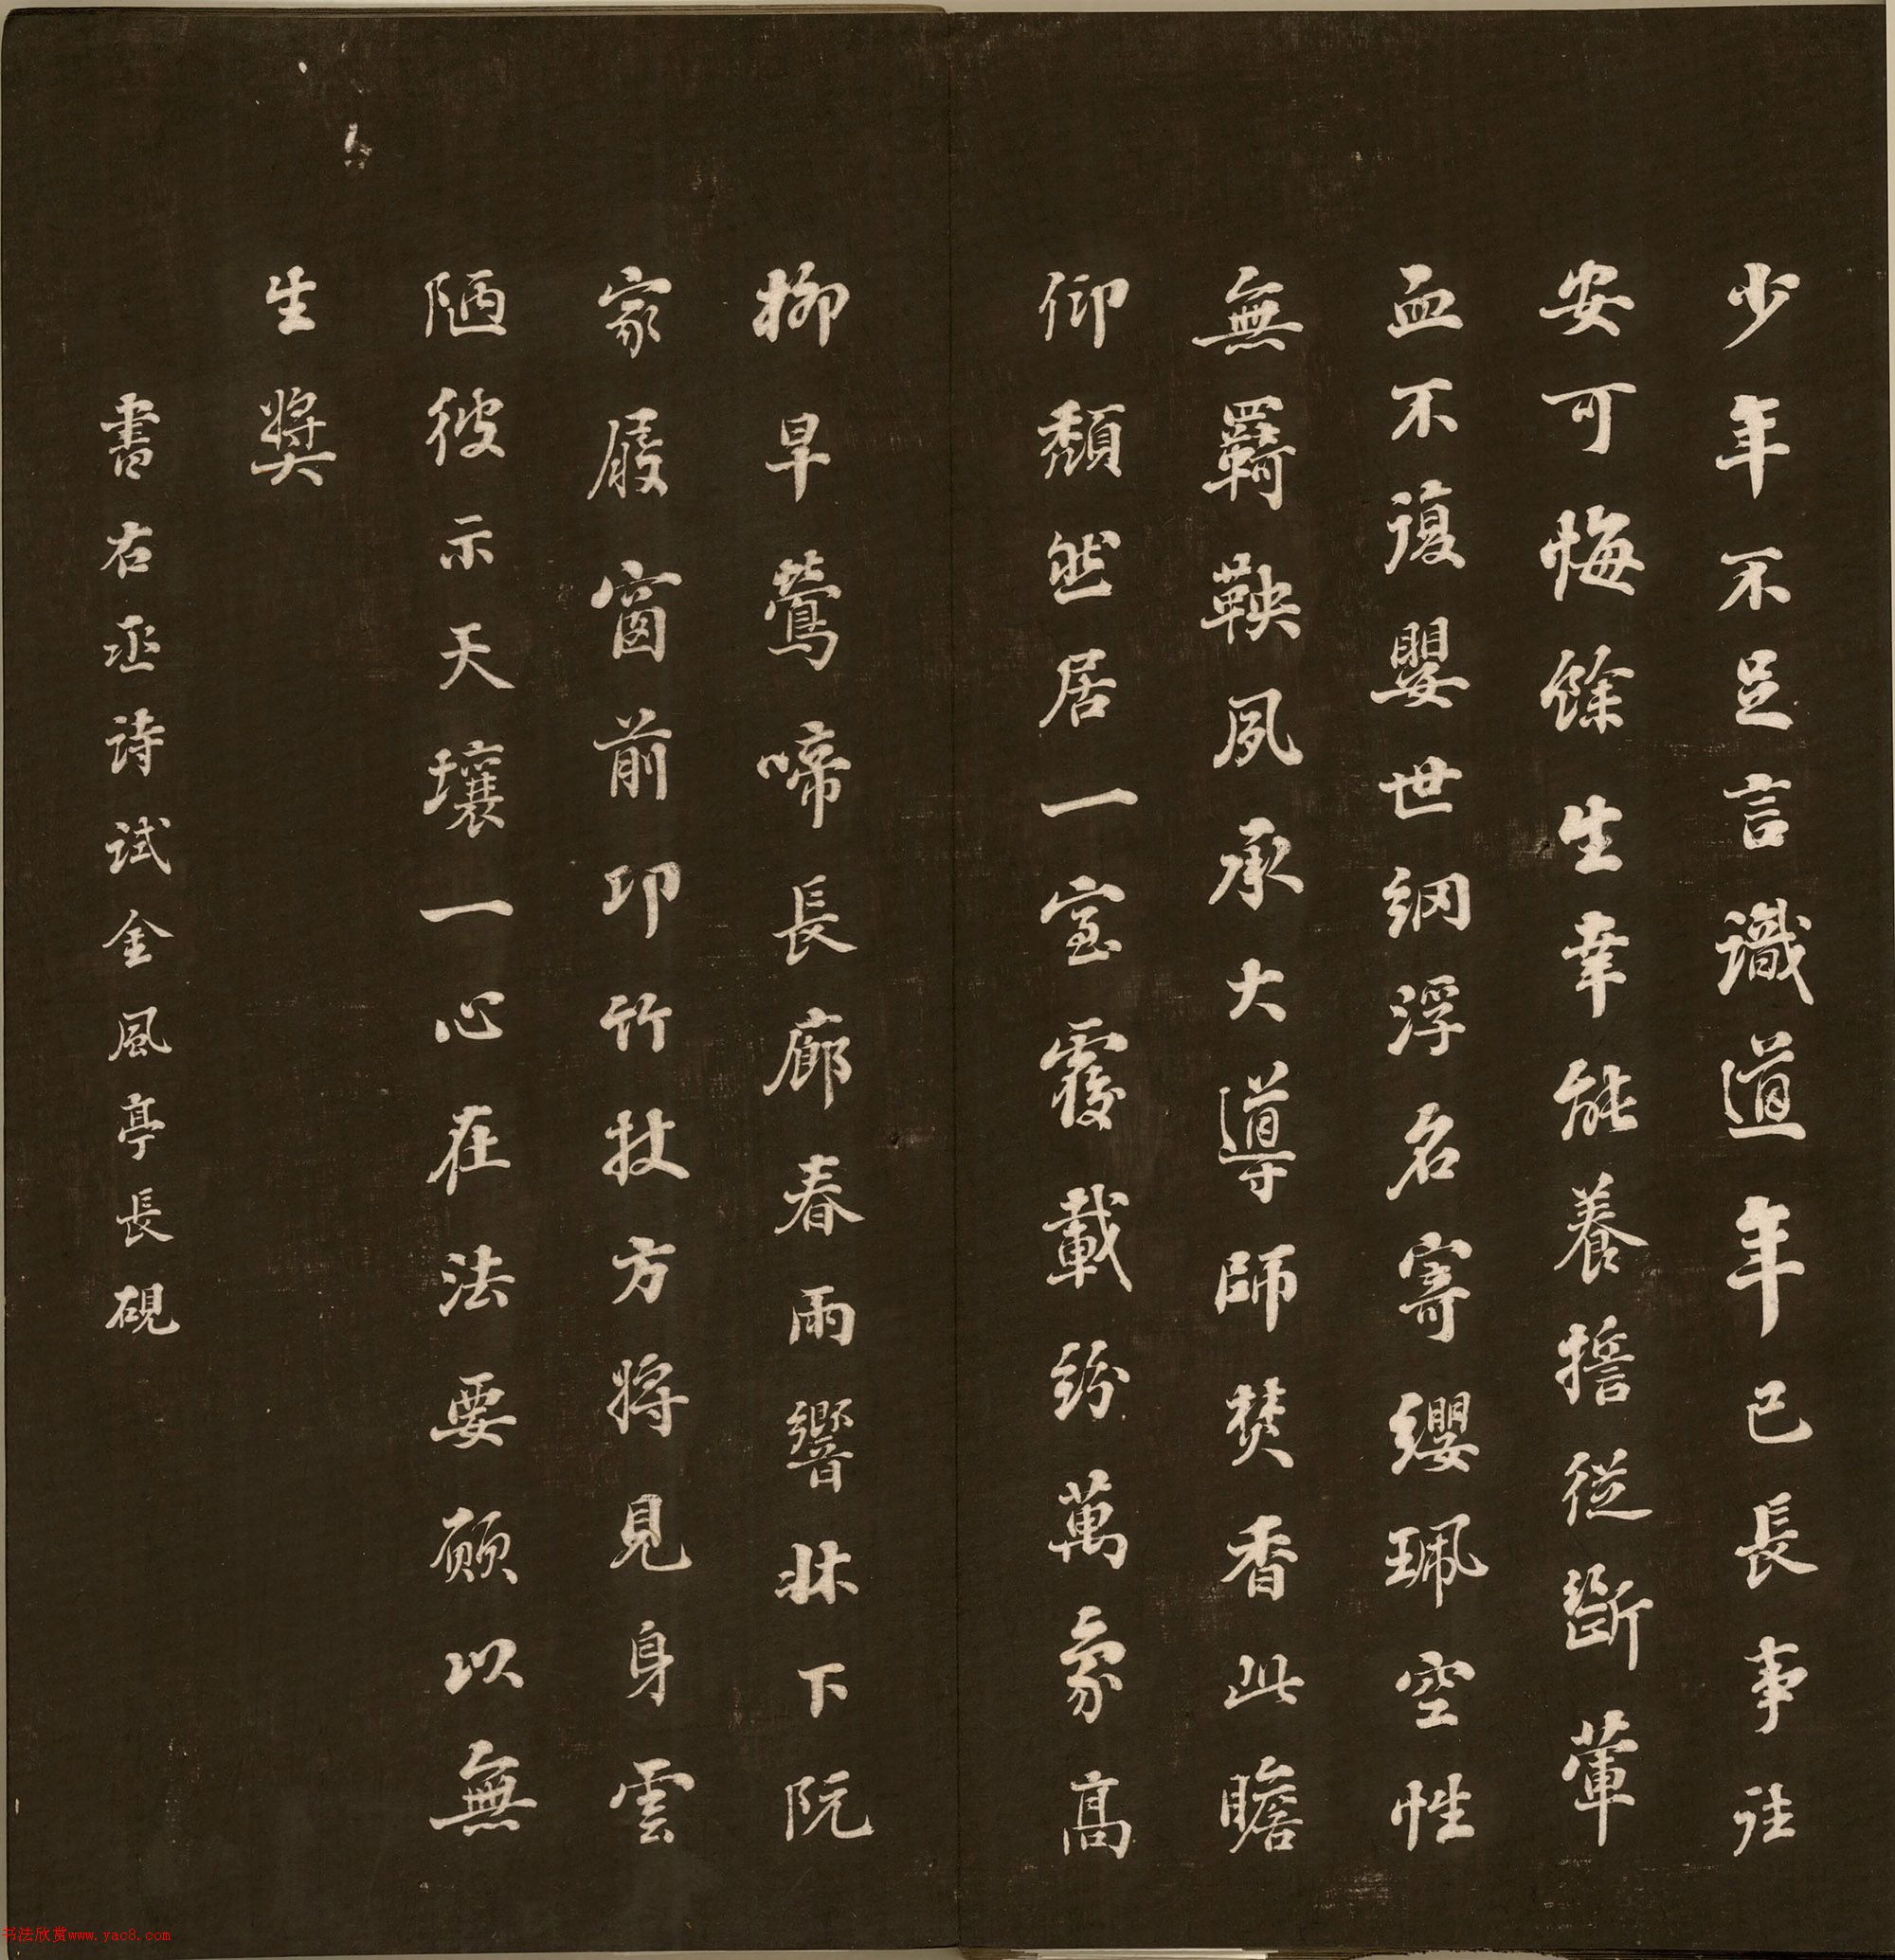 少年不足言識道年已長事往
安可悔餘生幸能養誓從斷葷
血不復嬰世網浮名寄纓珮空性
無羇鞅夙承大導師焚香此瞻
仰頹然居一室覆載紛萬象高
柳早鶯啼長廊春雨響牀下阮
家屐窗前卭竹杖方將見身雲
陋彼示天壤一心在法要願以無
生奬
書右丞詩試金風亭長硯
书法欣赏www.yac8.com